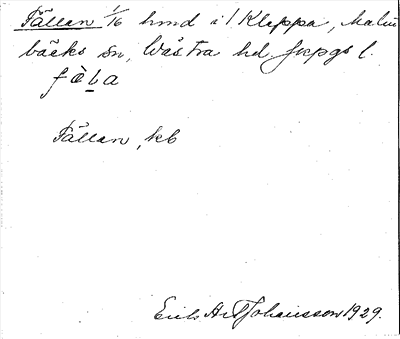 Fällan 1/16 hmd i ! Klappa, Malm
bäcks sn, Västra hd Jkpgs l.
fὲḷa
Fällan, kb
Erik Ax Johansson 1929.